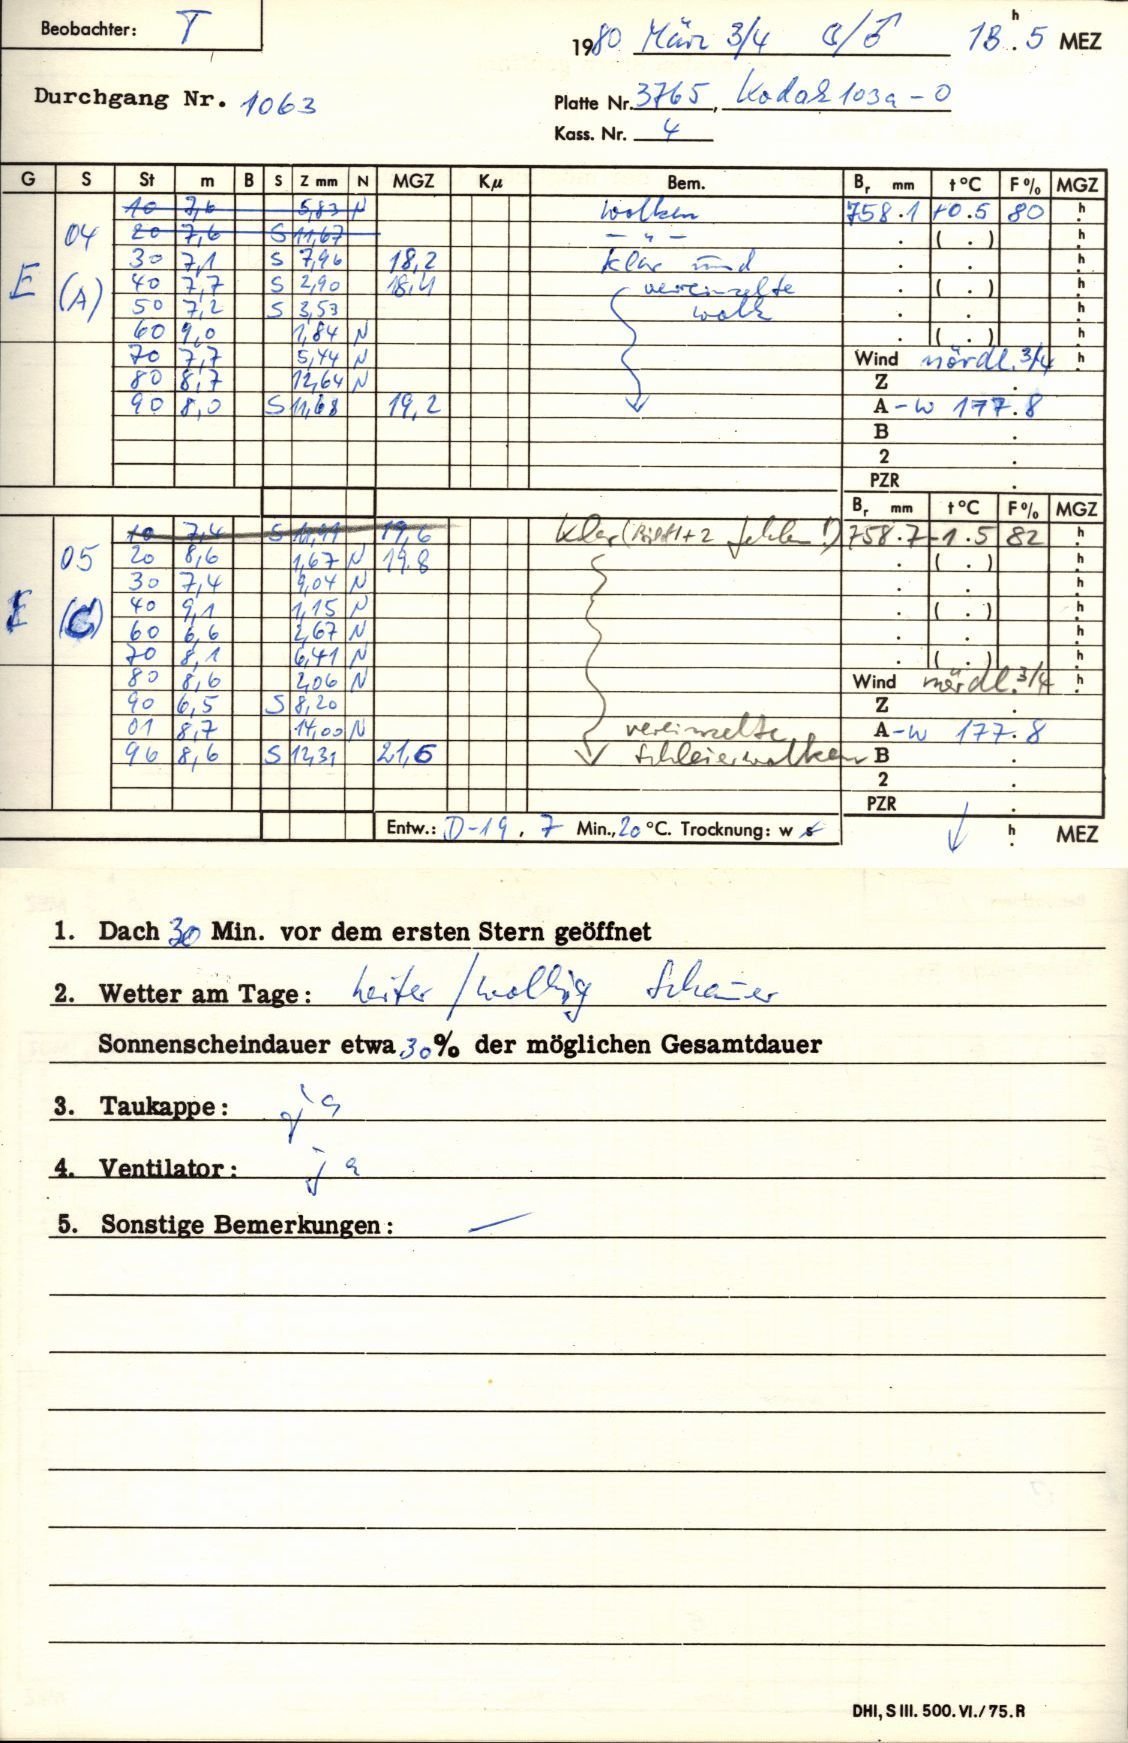 Beobachter: T
1980 März 3/4 18.5 h MEZ
Durchgang Nr. 1063
Platte Nr. 3765, Kodak 103a-O
Kass. Nr. 4
G S St m B S Z mm N MGZ Kµ Bem. Br mm t °C F % MGZ
10 7,6 5,83 N Wolken 758.1 +0.5 80 h
04 20 7,6 S 11,67 — " — . ( . ) h
30 7,1 S 7,96 18,2 klar und . . h
E (A) 40 7,7 S 2,90 18,4 vereinzelte . ( . ) h
50 7,2 S 3,53 Wolk . . h
60 9,0 1,84 N . ( . ) h
70 7,7 5,44 N Wind nördl. 3/4 h
80 8,7 12,64 N Z .
90 8,0 S 11,68 19,2 A -w 177.8
B .
2 .
PZR .
Br mm t °C F % MGZ
10 7,4 S 11,41 19,6 klar ( 1+2 fehlen!) 758.7 -1.5 82 h
05 20 8,6 1,67 N 19.8 . ( . ) h
30 7,4 9,04 N . . h
E (C) 40 9,1 1,15 N . ( . ) h
60 6,6 2,67 N . . h
70 8,1 6,41 N . ( . ) h
80 8,6 2,06 N Wind nördl. 3/4 h
90 6,5 S 8,20 Z .
01 8,7 14,00 N vereinzelte A -w 177.8
96 8,6 S 12,31 21,6 Schleierwolken B .
2 .
PZR .
Entw.: D-19, 7 Min., 20 °C. Trocknung: w s h . MEZ
1. Dach 30 Min. vor dem ersten Stern geöffnet
2. Wetter am Tage: heiter / wolkig Schauer
Sonnenscheindauer etwa 30 % der möglichen Gesamtdauer
3. Taukappe: ja
4. Ventilator: ja
5. Sonstige Bemerkungen: —
DHI, S III. 500. VI./75. R